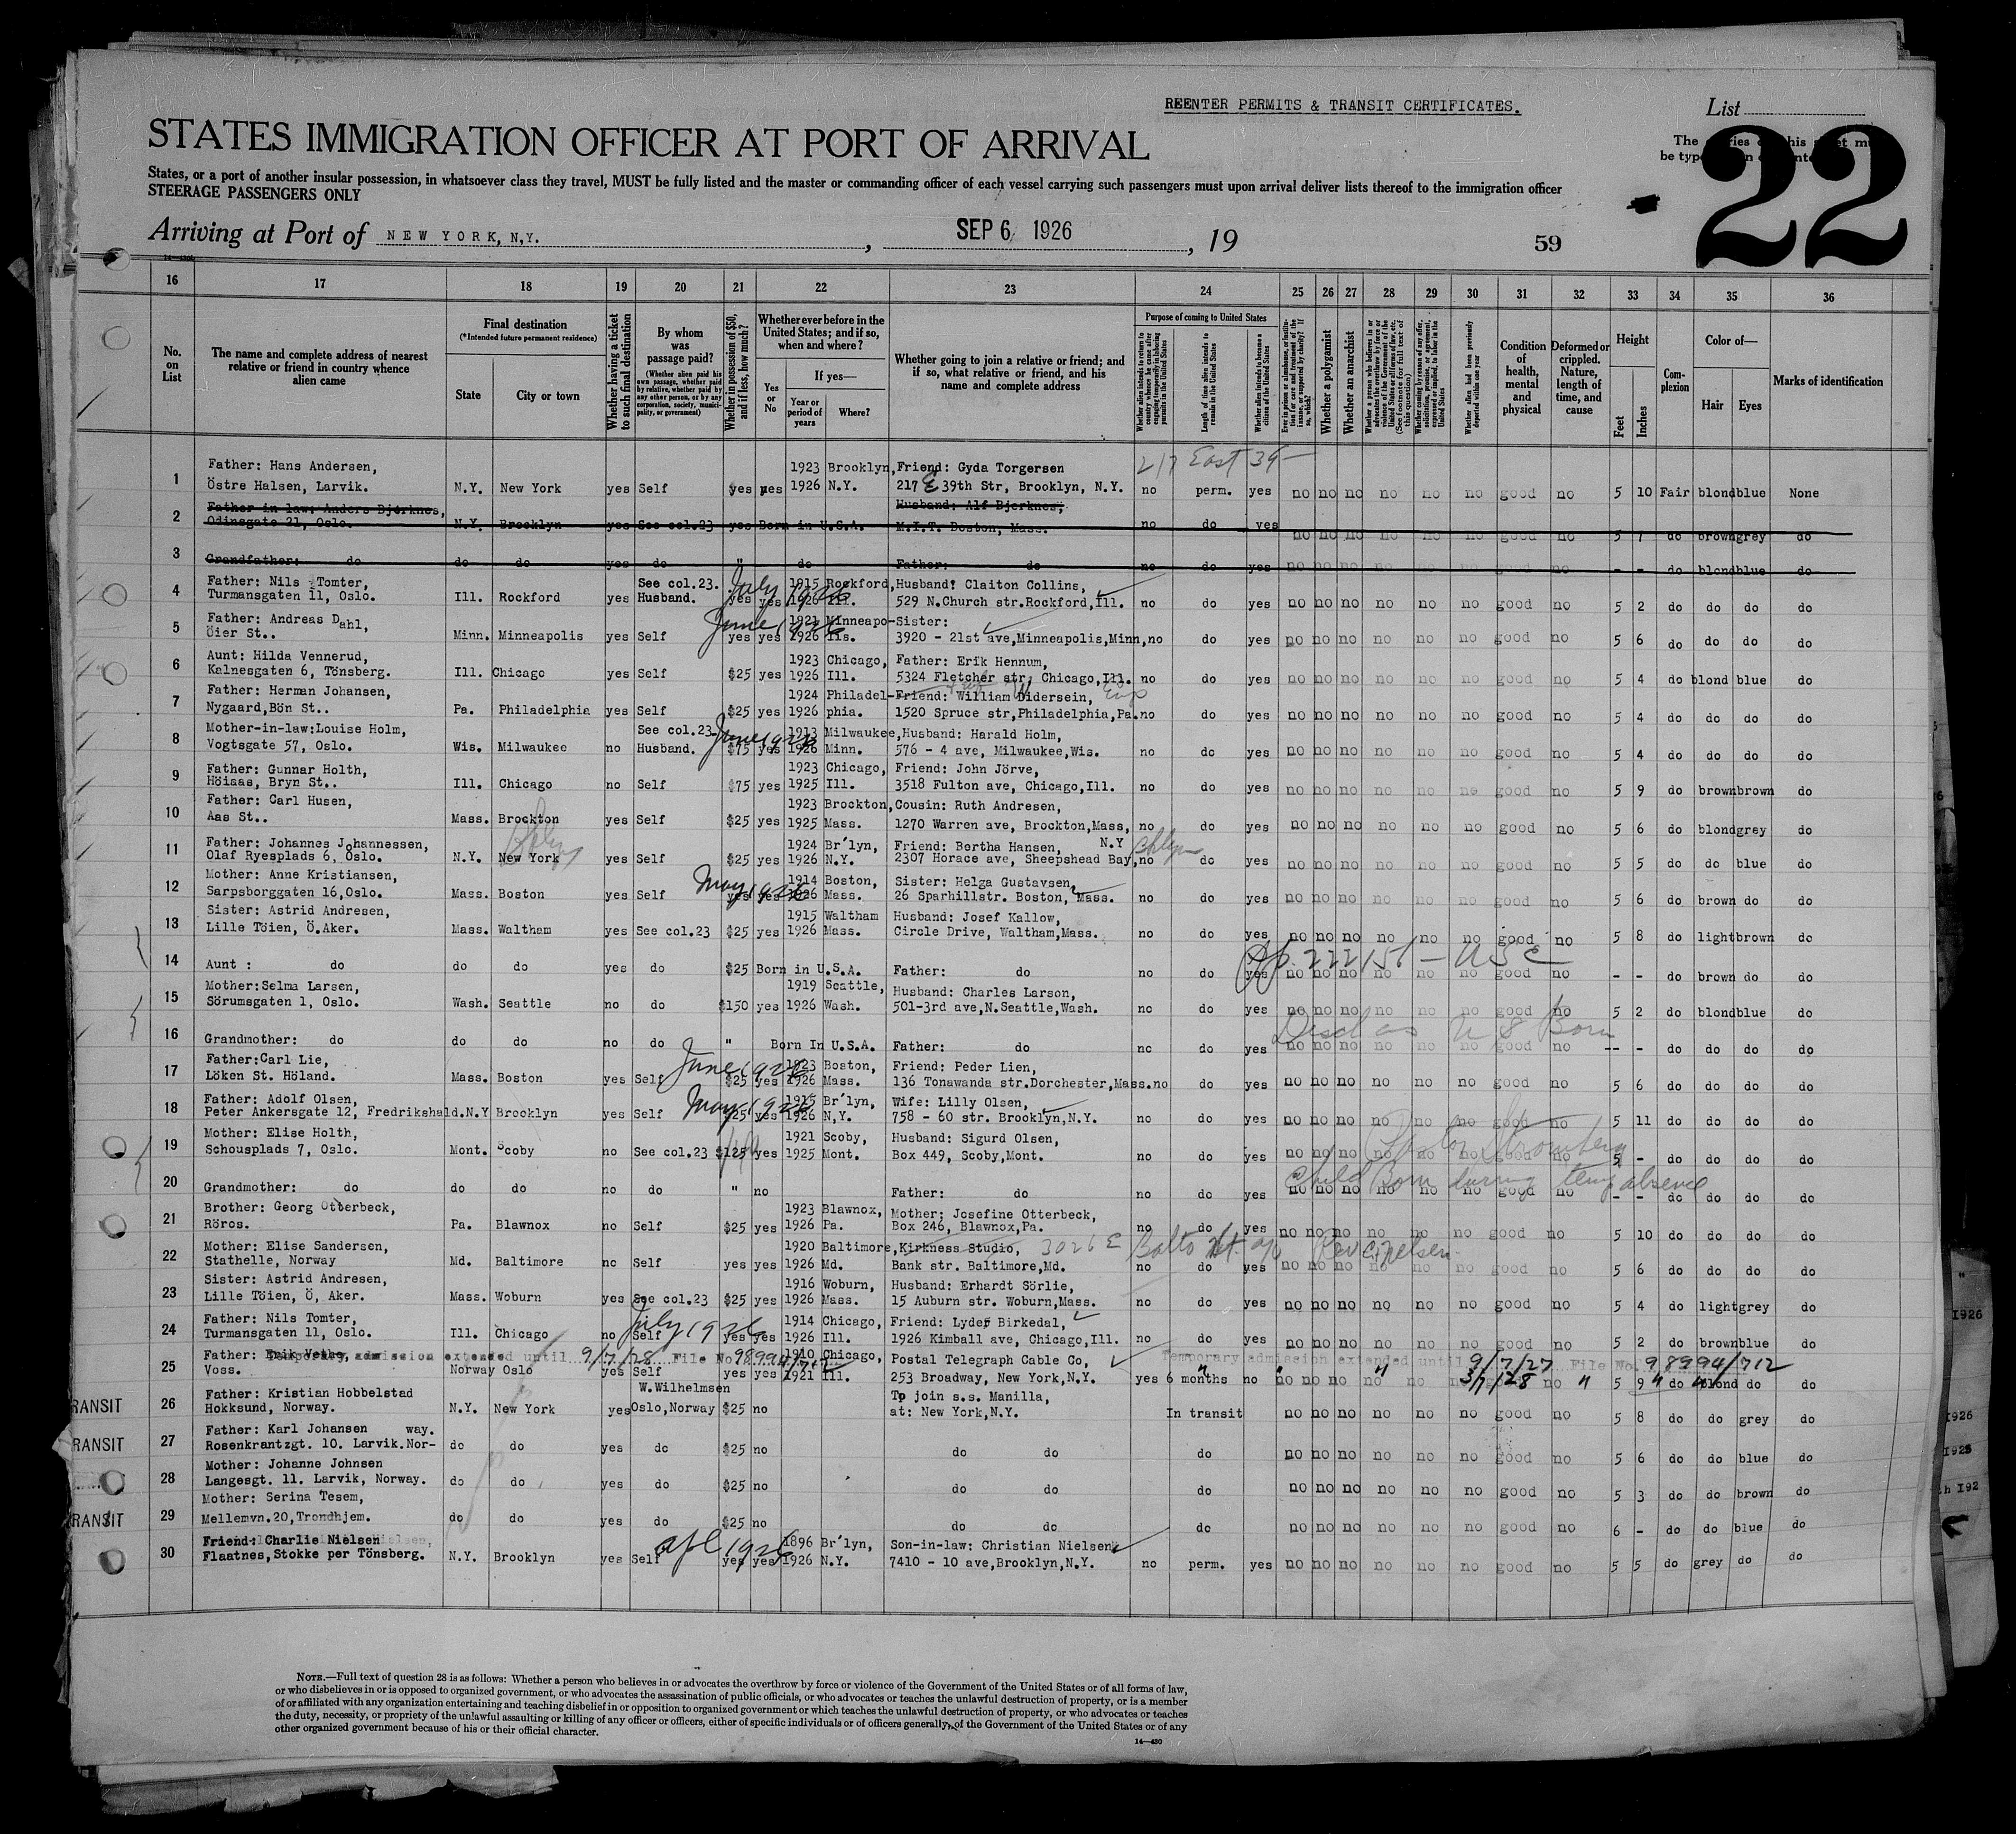 REENTER PERMITS & TRANSIT CERTIFICATES.
List
22
STATES IMMIGRATION OFFICER AT PORT OF ARRIVAL
States, or a port of another insular possession, in whatsoever class they travel, MUST be fully listed and the master or commanding officer of each vessel carrying such passengers must upon arrival deliver lists thereof to the immigration officer
STEERAGE PASSENGERS ONLY
Arriving at Port of NEW YORK, N.Y. , SEP 6 1926 , 19
59
16 17 18 19 20 21 22 23 24 25 26 27 28 29 30 31 32 33 34 35 36
No. on List
The name and complete address of nearest relative or friend in country whence alien came
Final destination
(*Intended future permanent residence)
State
City or town
Whether having a ticket to such final destination
By whom was passage paid?
(Whether alien paid his own passage, whether paid by relative, whether paid by any other person, or by any corporation, society, municipality, or government)
Whether in possession of $50, and if less, how much?
Whether ever before in the United States; and if so, when and where?
Yes or No
If yes—
Year or period of years
Where?
Whether going to join a relative or friend; and if so, what relative or friend, and his name and complete address
Purpose of coming to United States
Length of time alien intends to remain in the United States
Whether a polygamist
Whether an anarchist
Condition of health, mental and physical
Deformed or crippled. Nature, length of time, and cause
Height
Feet
Inches
Complexion
Color of—
Hair
Eyes
Marks of identification
1 Father: Hans Andersen, 1923 Brooklyn, Friend: Gyda Torgersen 217 East 39
Östre Halsen, Larvik. N.Y. New York yes Self yes yes 1926 N.Y. 217 E 39th Str, Brooklyn, N.Y. no perm. yes no no no no no no good no 5 10 Fair blond blue None
2 Father in law: Anders Bjerknes, Husband: Alf Bjerknes,
Odinsgate 21, Oslo. N.Y. Brooklyn yes See col.23 yes Born in U.S.A. M.I.T. Boston, Mass. no do yes no no no no no no good no 5 7 do brown grey do
3 Grandfather: do do do yes do " do Father: do no do yes no no no no no no good no - - do blond blue do
4 Father: Nils Tomter, See col.23. July 1926 1915 Rockford, Husband: Claiton Collins,
Turmansgaten 11, Oslo. Ill. Rockford yes Husband. yes yes 1926 Ill. 529 N.Church str.Rockford,Ill. no do yes no no no no no no good no 5 2 do do do do
5 Father: Andreas Dahl, June 1926 1921 Minneapo- Sister:
Öier St.. Minn. Minneapolis yes Self yes yes 1926 lis. 3920 - 21st ave,Minneapolis,Minn, no do yes no no no no no no good no 5 6 do do do do
6 Aunt: Hilda Vennerud, 1923 Chicago, Father: Erik Hennum,
Kalnesgaten 6, Tönsberg. Ill. Chicago yes Self $25 yes 1926 Ill. 5324 Fletcher str, Chicago,Ill. no do yes no no no no no no good no 5 4 do blond blue do
7 Father: Herman Johansen, 1924 Philadel- Friend: William Didersein,
Nygaard,Bön St.. Pa. Philadelphia yes Self $25 yes 1926 phia. 1520 Spruce str,Philadelphia,Pa. no do yes no no no no no no good no 5 4 do do do do
8 Mother-in-law:Louise Holm, See col.23 June 1926 1913 Milwaukee, Husband: Harald Holm,
Vogtsgate 57, Oslo. Wis. Milwaukee no Husband. $75 yes 1926 Minn. 576 - 4 ave, Milwaukee,Wis. no do yes no no no no no no good no 5 4 do do do do
9 Father: Gunnar Holth, 1923 Chicago, Friend: John Jörve,
Höiaas, Bryn St.. Ill. Chicago no Self $75 yes 1925 Ill. 3518 Fulton ave, Chicago,Ill. no do yes no no no no no no good no 5 9 do brown brown do
10 Father: Carl Husen, 1923 Brockton, Cousin: Ruth Andresen,
Aas St.. Mass. Brockton yes Self $25 yes 1925 Mass. 1270 Warren ave, Brockton,Mass, no do yes no no no no no no good no 5 6 do blond grey do
11 Father: Johannes Johannessen, 1924 Br'lyn, Friend: Bertha Hansen, N.Y Bklyn
Olaf Ryesplads 6, Oslo. N.Y. New York yes Self $25 yes 1926 N.Y. 2307 Horace ave, Sheepshead Bay, no do yes no no no no no no good no 5 5 do do blue do
12 Mother: Anne Kristiansen, May 1926 1914 Boston, Sister: Helga Gustavsen,
Sarpsborggaten 16,Oslo. Mass. Boston yes Self yes yes 1926 Mass. 26 Sparhillstr. Boston, Mass. no do yes no no no no no no good no 5 6 do brown do do
13 Sister: Astrid Andresen, 1915 Waltham Husband: Josef Kallow,
Lille Töien, Ö.Aker. Mass. Waltham yes See col.23 $25 yes 1926 Mass. Circle Drive, Waltham,Mass. no do yes no no no no no no good no 5 8 do light brown do
14 Aunt : do do do yes do $25 Born in U.S.A. Father: do no do yes no no no no no no good no - - do brown do do
15 Mother:Selma Larsen, 1919 Seattle, Husband: Charles Larson,
Sörumsgaten 1, Oslo. Wash. Seattle no do $150 yes 1926 Wash. 501-3rd ave,N.Seattle,Wash. no do yes no no no no no no good no 5 2 do blond blue do
16 Grandmother: do do do no do " Born In U.S.A. Father: do no do yes no no no no no no good no -- - do do do do
U S Born
17 Father:Carl Lie, June 1926 1923 Boston, Friend: Peder Lien,
Löken St. Höland. Mass. Boston yes Self $25 yes 1926 Mass. 136 Tonawanda str.Dorchester,Mass. no do yes no no no no no no good no 5 6 do do do do
18 Father: Adolf Olsen, May 1926 1915 Br'lyn, Wife: Lilly Olsen,
Peter Ankersgate 12, Fredrikshald. N.Y Brooklyn yes Self $25 yes 1926 N,Y. 758 - 60 str. Brooklyn,N.Y. no do yes no no no no no no good no 5 11 do do do do
19 Mother: Elise Holth, 1921 Scoby, Husband: Sigurd Olsen,
Schousplads 7, Oslo. Mont. Scoby no See col.23 $125 yes 1925 Mont. Box 449, Scoby,Mont. no do yes no no no no do no good no 5 - do do do do
20 Grandmother: do do do no do " no Father: do no do yes no no no no no no good no - - do do do do
Child Born during temp absence
21 Brother: Georg Otterbeck, 1923 Blawnox, Mother: Josefine Otterbeck,
Röros. Pa. Blawnox no Self $25 yes 1926 Pa. Box 246, Blawnox,Pa. no do yes no no no no no no good no 5 10 do do do do
22 Mother: Elise Sandersen, 1920 Baltimore, Kirkness Studio, 3026 E Balto
Stathelle, Norway Md. Baltimore no Self yes yes 1926 Md. Bank str. Baltimore,Md. no do yes no no no no no no good no 5 6 do do do do
23 Sister: Astrid Andresen, 1916 Woburn, Husband: Erhardt Sörlie,
Lille Töien, Ö, Aker. Mass. Woburn yes See col.23 $25 yes 1926 Mass. 15 Auburn str. Woburn,Mass. no do yes no no no no no no good no 5 4 do light grey do
24 Father: Nils Tomter, July 1926 1914 Chicago, Friend: Lyder Birkedal,
Turmansgaten 11, Oslo. Ill. Chicago no Self yes yes 1926 Ill. 1926 Kimball ave, Chicago,Ill. no do yes no no no no no no good no 5 2 do brown blue do
25 Father: Erik Vethe, Temporary admission extended until 9/7/28 File No. 98994/712 1910 Chicago, Postal Telegraph Cable Co, Temporary admission extended until 9/7/27 File No. 98994/712
Voss. Norway Oslo yes Self yes yes 1921 Ill. 253 Broadway, New York,N.Y. yes 6 months no no no no no no no good no 5 9 do blond do do
TRANSIT 26 Father: Kristian Hobbelstad W.Wilhelmsen To join s.s. Manilla,
Hokksund, Norway. N.Y. New York yes Oslo,Norway $25 no at: New York,N.Y. In transit no no no no no no good no 5 8 do do grey do
TRANSIT 27 Father: Karl Johansen way.
Rosenkrantzgt. 10. Larvik.Nor- do do yes do $25 no do do do no no no no no no good no 5 6 do do blue do
28 Mother: Johanne Johnsen
Langesgt. 11. Larvik, Norway. do do yes do $25 no do do do no no no no no no good no 5 3 do do brown do
TRANSIT 29 Mother: Serina Tesem,
Mellemvn.20,Trondhjem. do do yes do $25 no do do do no no no no no no good no 6 - do do blue do
30 Friend: Charlie Nielsen apl 1926 1896 Br'lyn, Son-in-law: Christian Nielsen
Flaatnes,Stokke per Tönsberg. N.Y. Brooklyn yes Self yes yes 1926 N.Y. 7410 - 10 ave,Brooklyn,N.Y. no perm. yes no no no no no no good no 5 5 do grey do do
NOTE.—Full text of question 28 is as follows: Whether a person who believes in or advocates the overthrow by force or violence of the Government of the United States or of all forms of law,
or who disbelieves in or is opposed to organized government, or who advocates the assassination of public officials, or who advocates or teaches the unlawful destruction of property, or is a member
of or affiliated with any organization entertaining and teaching disbelief in or opposition to organized government or which teaches the unlawful destruction of property, or who advocates or teaches
the duty, necessity, or propriety of the unlawful assaulting or killing of any officer or officers, either of specific individuals or of officers generally, of the Government of the United States or of any
other organized government because of his or their official character.
14—430